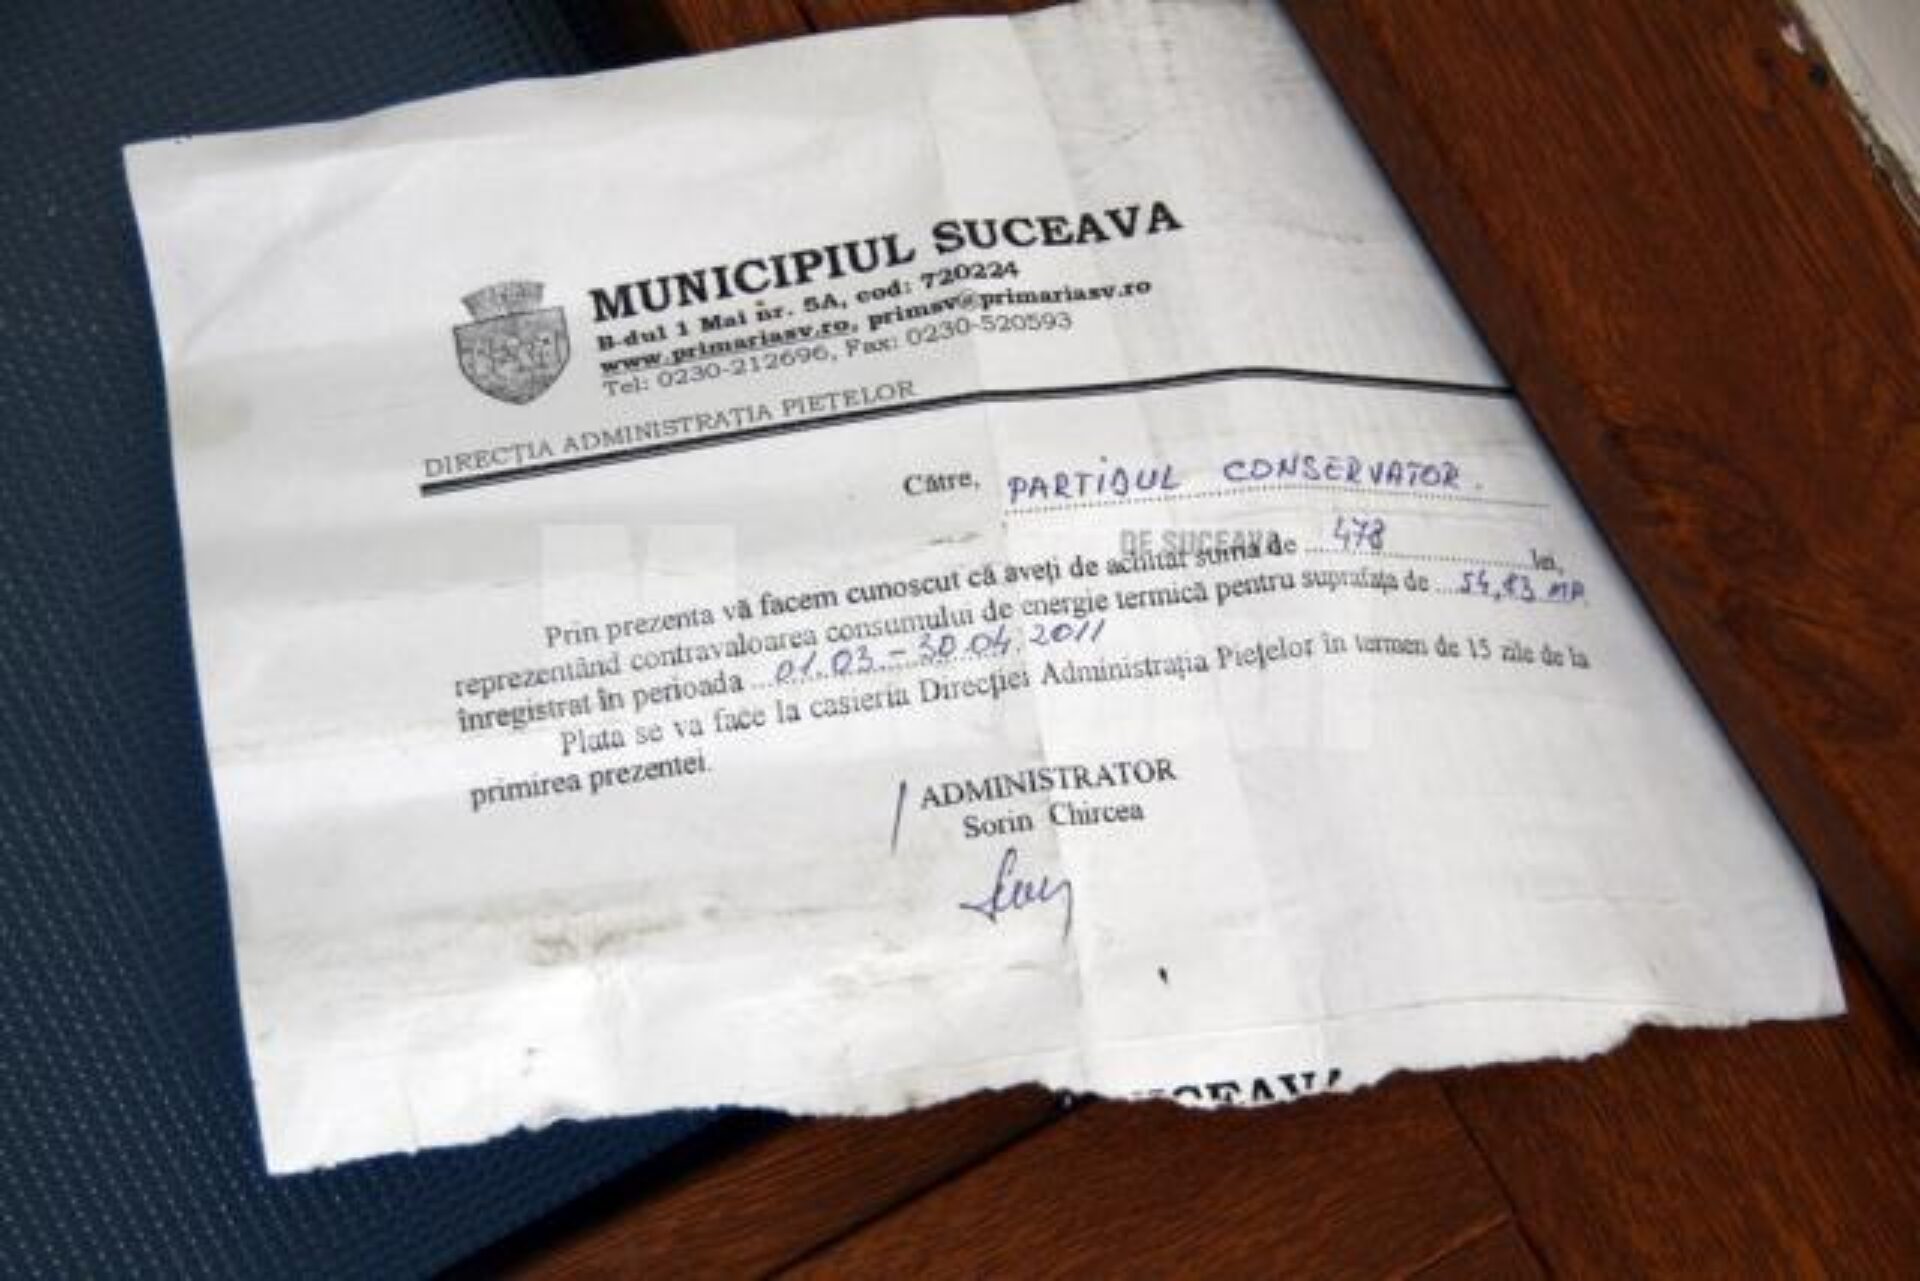 MUNICIPIUL SUCEAVA
B-dul 1 Mai nr. 5A, cod: 720224
www.primariasv.ro, primsv@primariasv.ro
Tel: 0230-212696, Fax: 0230-520593
DIRECȚIA ADMINISTRAȚIA PIEȚELOR
Către, PARTIDUL CONSERVATOR.
DE SUCEAVA
Prin prezenta vă facem cunoscut că aveți de achitat suma de ...478............lei,
reprezentând contravaloarea consumului de energie termică pentru suprafața de ...54,83 MP.
înregistrat în perioada ...01.03.-30.04.2011
Plata se va face la casieria Direcției Administrația Piețelor în termen de 15 zile de la
primirea prezentei.
ADMINISTRATOR
Sorin Chircea
SUCEAVA